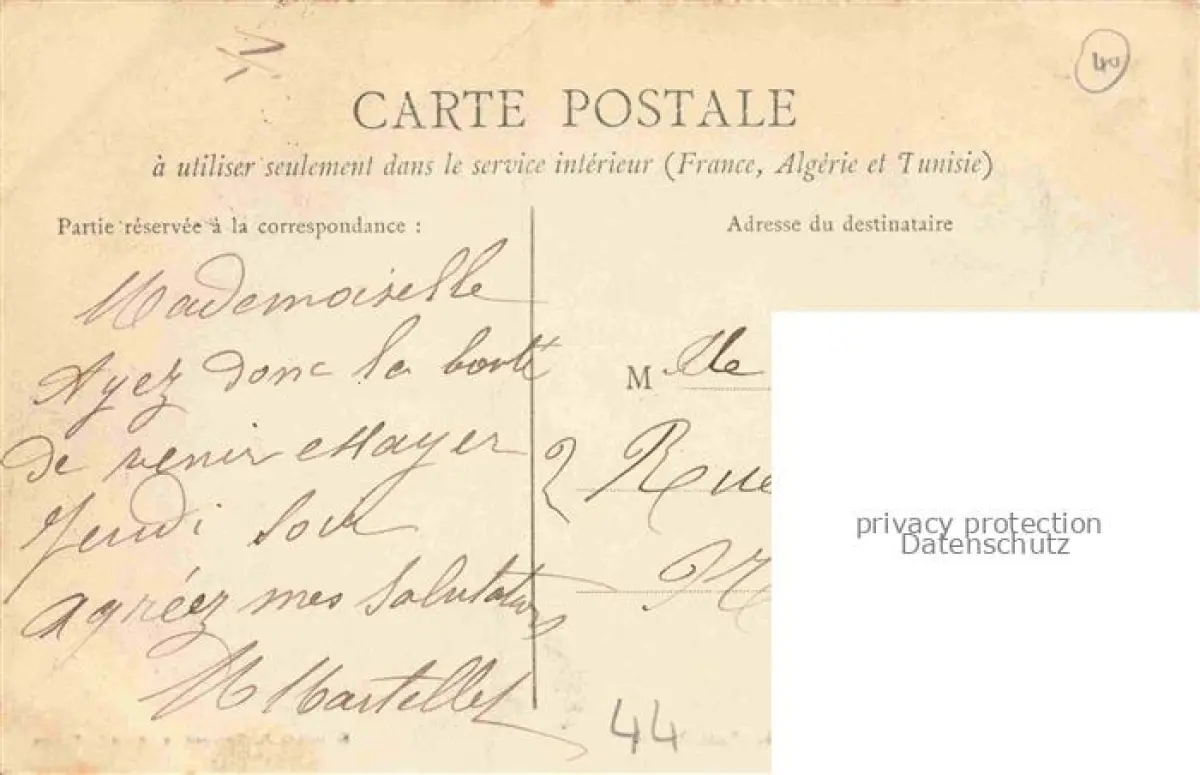 40
CARTE POSTALE
à utiliser seulement dans le service intérieur (France, Algérie et Tunisie)
Partie réservée à la correspondance :
Mademoiselle
Ayez donc la bonté
de venir essayer
Jeudi soir
agréez mes salutations
M Martellet
Adresse du destinataire
M lle
2 Rue
privacy protection
Datenschutz
44